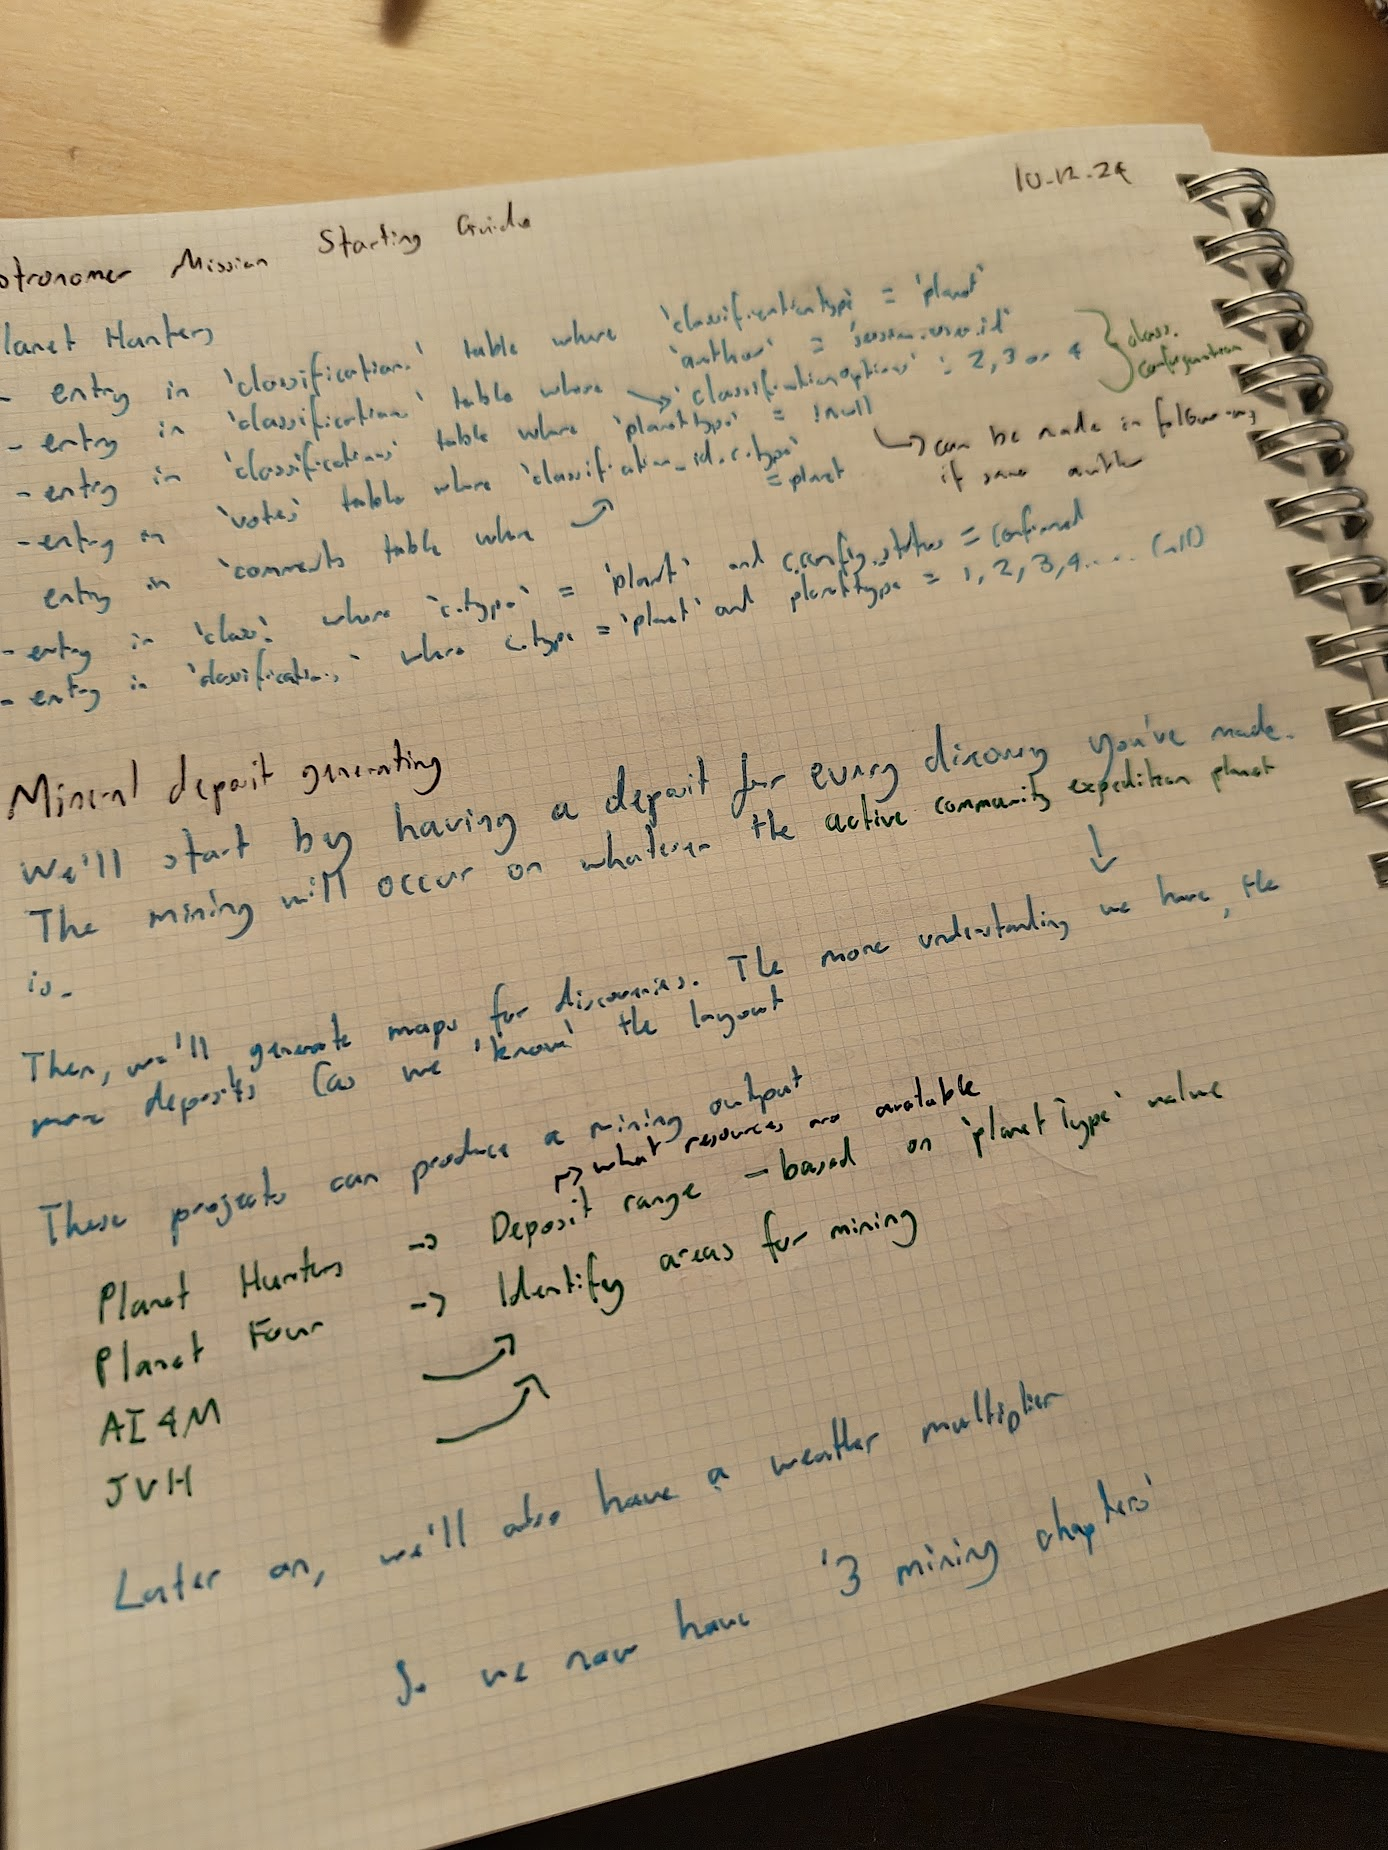 10-12-24
stronomer Mission Starting Guide
lanet Hunters
- entry in 'classifications' table where 'classificationtype' = 'planet'
- entry in 'classifications' table where 'author' = 'session.user.id'
- entry in 'classifications' table where 'classificationOptions' : 2, 3 or 4
class.
configuration
- entry in 'votes' table where 'classification_id.c.type'
'planettype' = !null
= planet
can be made in following
if same author
entry in 'comments table where
- entry in 'class.' where 'c.type' = 'planet' and c.config.status = confirmed
- entry in 'classifications' where c.type = 'planet' and planettype = 1, 2, 3, 4.... (all)
Mineral deposit generating
We'll start by having a deposit for every discovery you've made.
The mining will occur on whatever the active community expedition planet
is.
Then, we'll generate maps for discoveries. The more understanding we have, the
more deposits (as we 'know' the layout
These projects can produce a mining output
what resources are available
Planet Hunters -> Deposit range - based on 'planetType' value
Planet Four -> Identify areas for mining
AI4M
JVH
Later on, we'll also have a weather multiplier
So we now have '3 mining chapters'